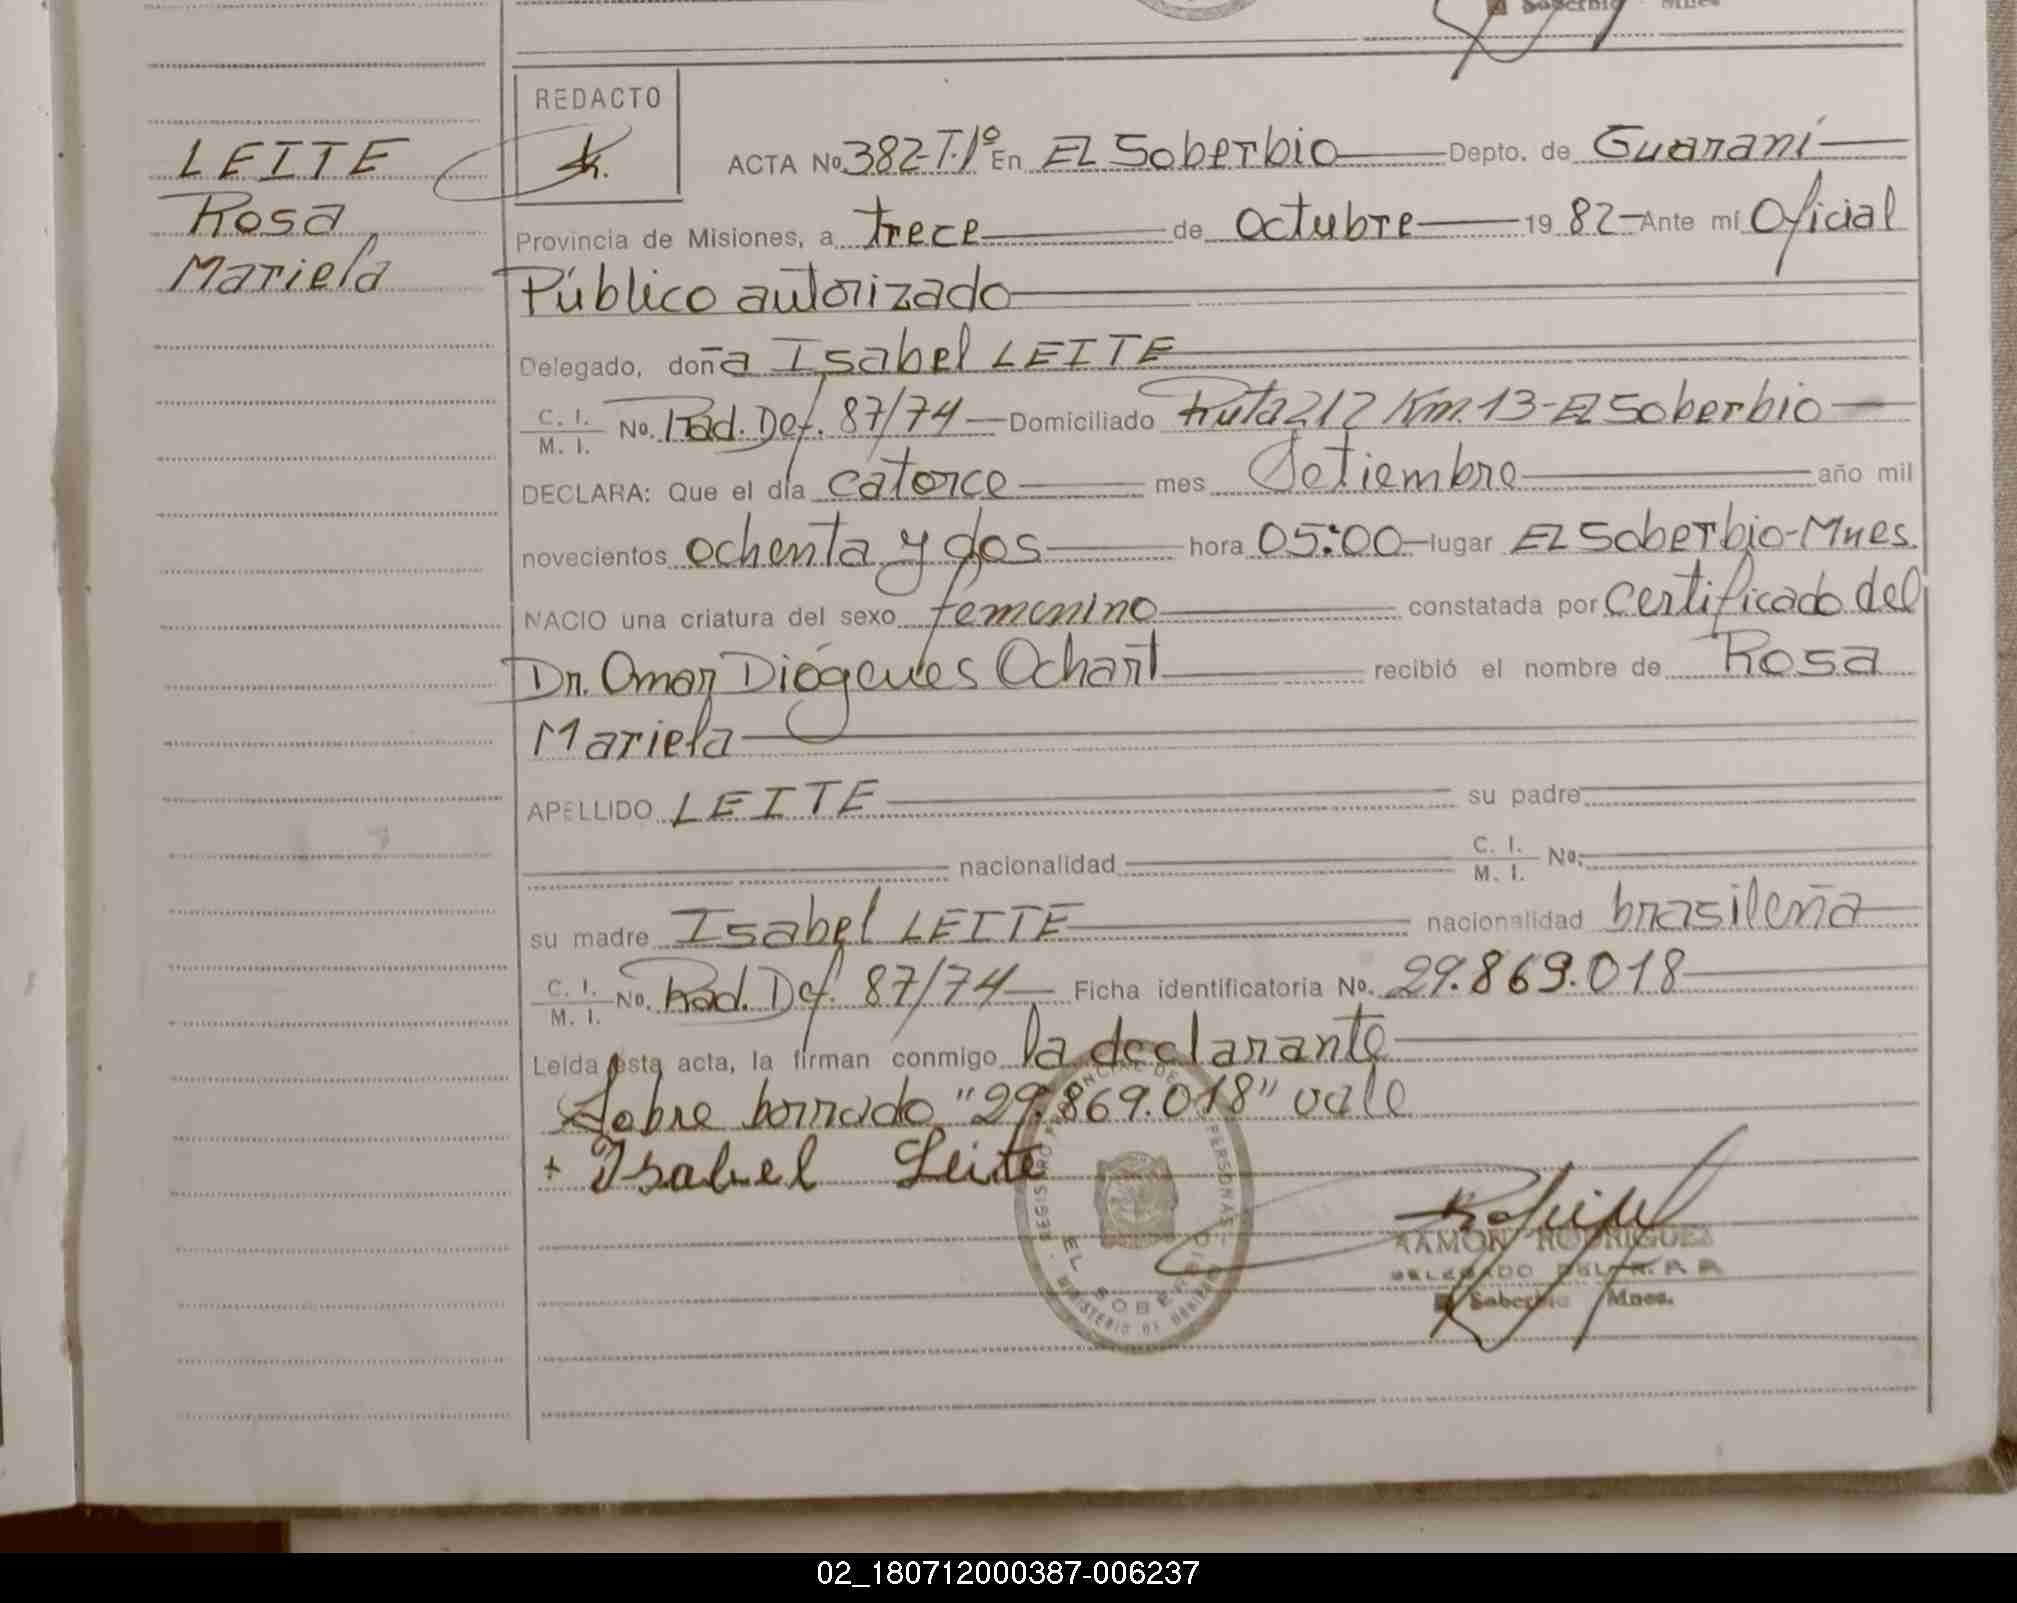 Soberbio Mnes
REDACTO
LEITE
Rosa
Mariela
ACTA No 382-T.1º En EL Soberbio Depto. de Guaraní
Provincia de Misiones, a trece de octubre 19 82 Ante mí Oficial
Público autorizado
Delegado, doña Isabel LEITE
C. I. / M. I. No. Rad. Def. 87/74 Domiciliado Ruta 212 Km. 13-El Soberbio
DECLARA: Que el día catorce mes Setiembre año mil
novecientos ochenta y dos hora 05:00 lugar EL Soberbio-Mnes.
NACIO una criatura del sexo femenino constatada por certificado del
Dr. Omar Diógenes Ochart recibió el nombre de Rosa
Mariela
APELLIDO LEITE su padre
nacionalidad C. I. / M. I. No.
su madre Isabel LEITE nacionalidad brasileña
C. I. / M. I. No. Rad. Def. 87/74 Ficha identificatoria No. 29.869.018
Leída esta acta, la firman conmigo la declarante
Sobre borrado "29.869.018" vale
+ Isabel Leite
REGISTRO PROVINCIAL DE PERSONAS
EL SOBERBIO
MINISTERIO DE GOBIERNO
RAMON RODRIGUEZ
DELEGADO DEL R. P. P.
Soberbio Mnes.
02_180712000387-006237